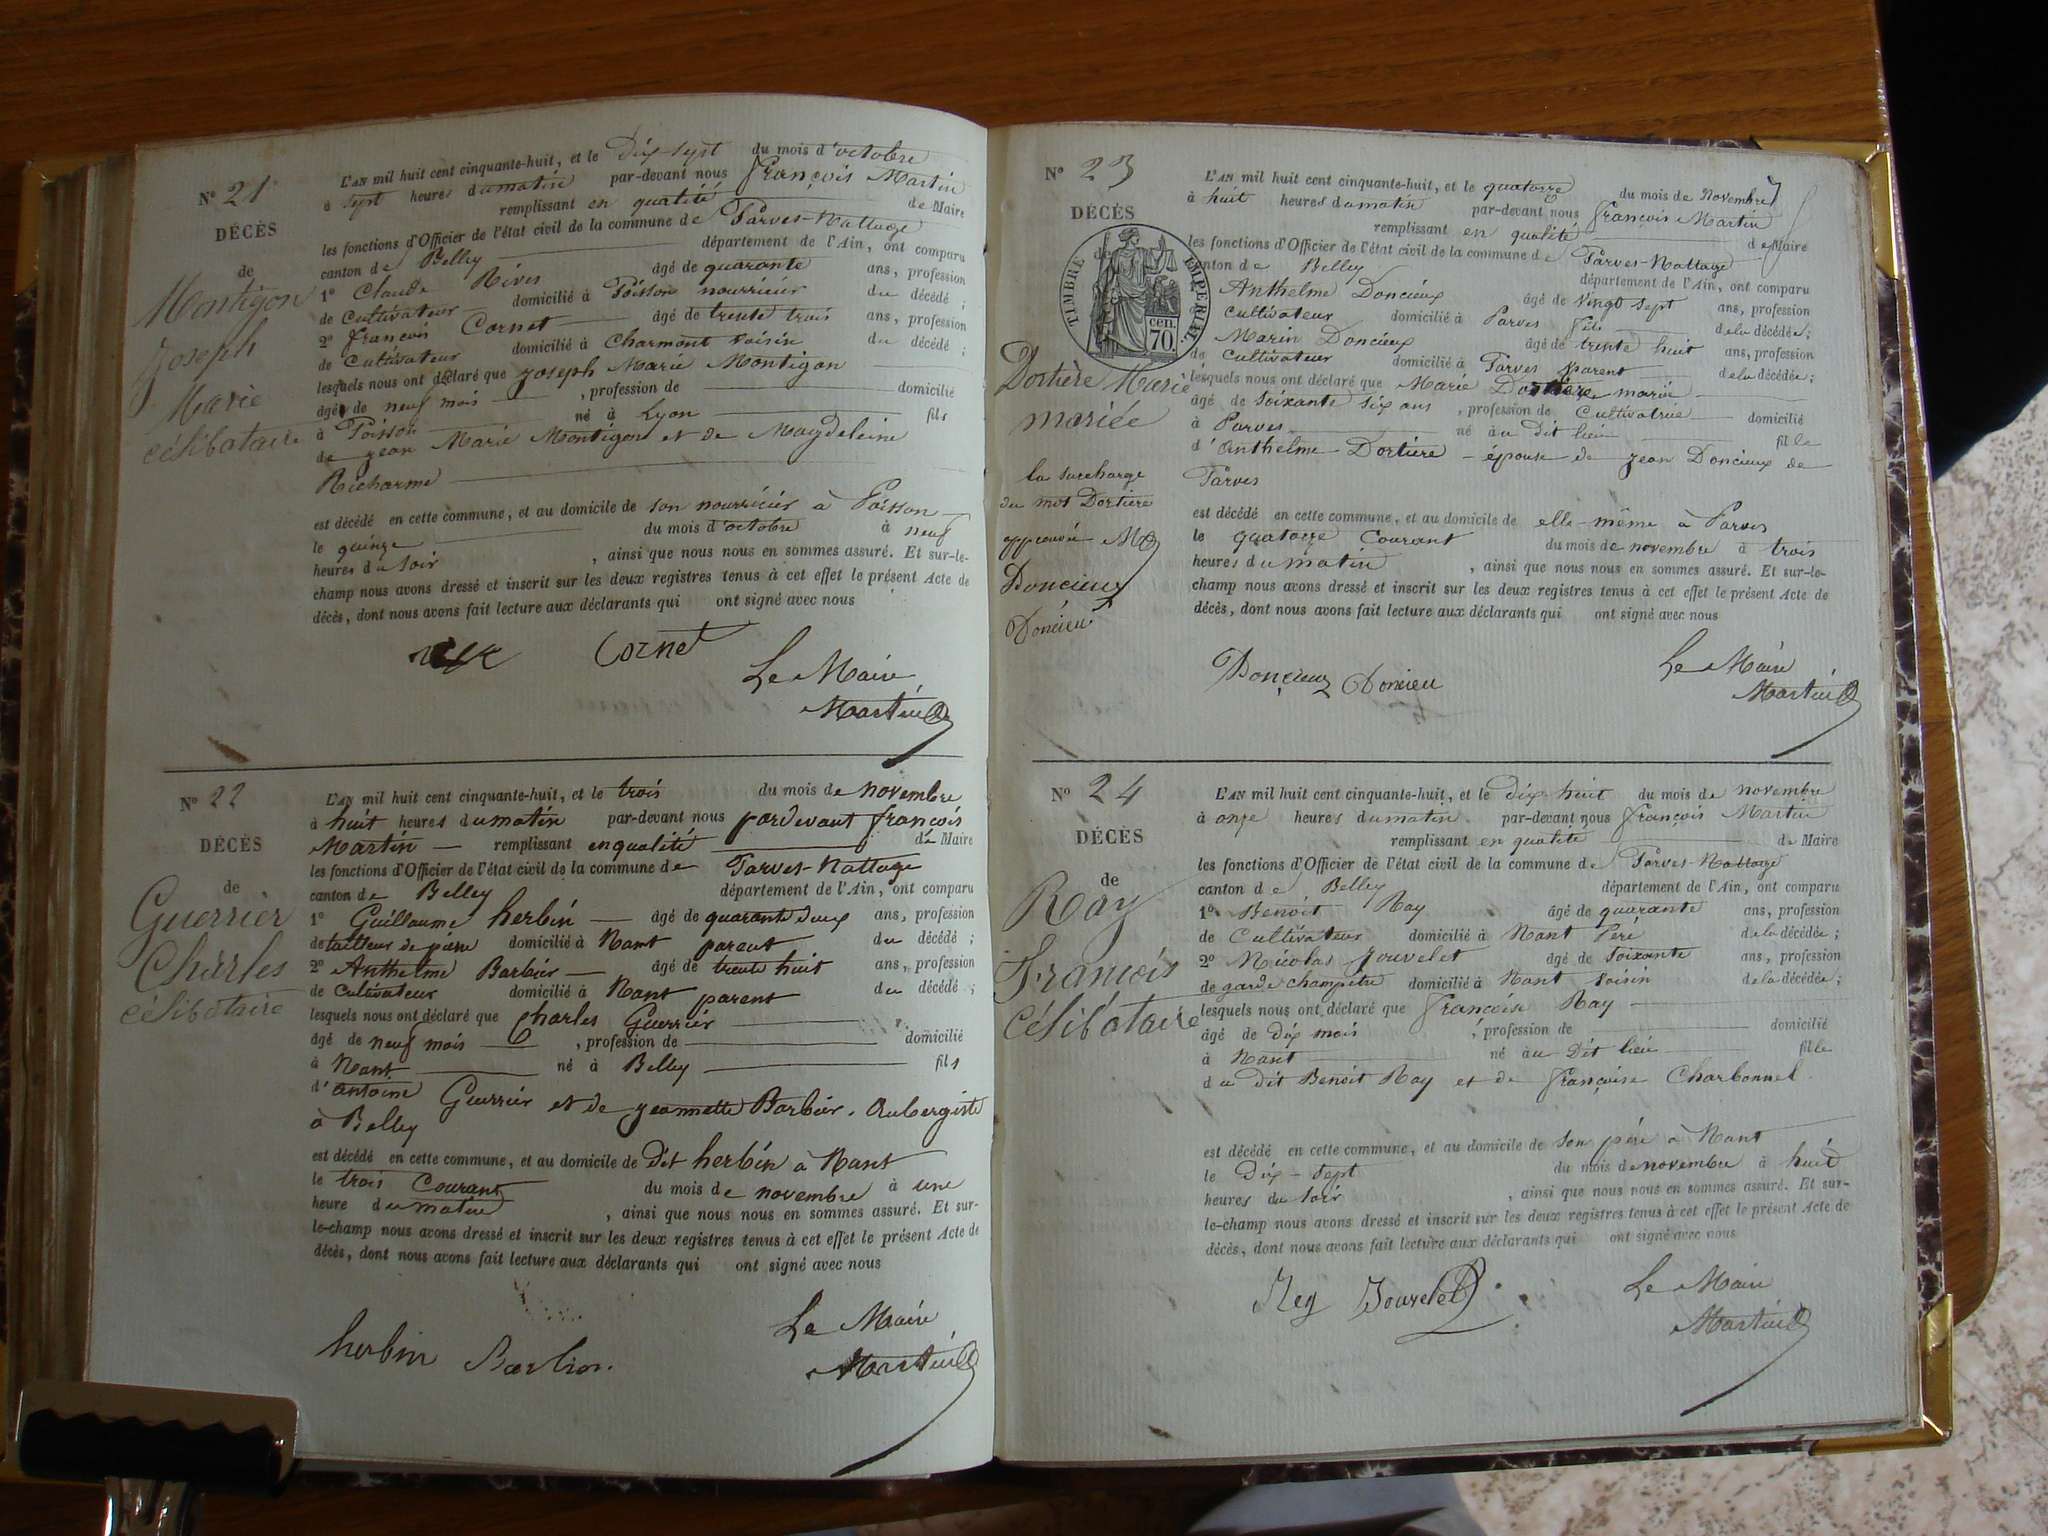 N° 21
DÉCÈS
de
Montigon
Joseph
Marie
célibataire
L'AN mil huit cent cinquante-huit, et le Dix-sept du mois d'octobre
à sept heures du matin par-devant nous françois Martin
remplissant en qualité de Maire
les fonctions d'Officier de l'état civil de la commune de Parves-Nattage
canton de Belley département de l'Ain, ont comparu
1° Claude Rives âgé de quarante ans, profession
de Cultivateur domicilié à Poisson nourricier du décédé ;
2° françois Cornet âgé de trente trois ans, profession
de Cultivateur domicilié à Charmont voisin du décédé ;
lesquels nous ont déclaré que Joseph Marie Montigon
âgé de neuf mois , profession de domicilié
à Poisson né à Lyon fils
de jean Marie Montigon et de Magdeleine
Richarme
est décédé en cette commune, et au domicile de son nourricier à Poisson
le quinze du mois d'octobre à neuf
heures du soir , ainsi que nous nous en sommes assuré. Et sur-le-
champ nous avons dressé et inscrit sur les deux registres tenus à cet effet le présent Acte de
décès, dont nous avons fait lecture aux déclarants qui ont signé avec nous
Cornet
Le Maire
Martin
N° 22
DÉCÈS
de
Guerrier
Charles
célibataire
L'AN mil huit cent cinquante-huit, et le trois du mois de novembre
à huit heures du matin par-devant nous pardevant françois
Martin remplissant en qualité de Maire
les fonctions d'Officier de l'état civil de la commune de Parves-Nattage
canton de Belley département de l'Ain, ont comparu
1° Guillaume herbin âgé de quarante deux ans, profession
de tailleur de pierre domicilié à Nant parent du décédé ;
2° Anthelme Barbier âgé de trente huit ans, profession
de Cultivateur domicilié à Nant parent du décédé ;
lesquels nous ont déclaré que Charles Guerrier
âgé de neuf mois , profession de domicilié
à Nant né à Belley fils
d'antoine Guerrier et de jeannette Barbier. Aubergiste
à Belley
est décédé en cette commune, et au domicile de Dit herbin à Nant
le trois Courant du mois de novembre à une
heure du matin , ainsi que nous nous en sommes assuré. Et sur-
le-champ nous avons dressé et inscrit sur les deux registres tenus à cet effet le présent Acte de
décès, dont nous avons fait lecture aux déclarants qui ont signé avec nous
herbin Barbier
Le Maire
Martin
N° 23
DÉCÈS
de
TIMBRE IMPÉRIAL
70 cen.
Dortière Marie
mariée
la surcharge
du mot Dortière
approuvée M
Doncieux
Doncieu
L'AN mil huit cent cinquante-huit, et le quatorze du mois de Novembre
à huit heures du matin par-devant nous françois Martin
remplissant en qualité de Maire
les fonctions d'Officier de l'état civil de la commune de Parves-Nattage
canton de Belley département de l'Ain, ont comparu
Anthelme Doncieux âgé de vingt sept ans, profession
cultivateur domicilié à Parves fils de la décédée ;
Marin Doncieux âgé de trente huit ans, profession
de Cultivateur domicilié à Parves parent de la décédée ;
lesquels nous ont déclaré que Marie Dortière mariée
âgé de soixante six ans , profession de Cultivatrice domicilié
à Parves né au dit lieu fille
d'Anthelme Dortière épouse de jean Doncieux de
Parves
est décédé en cette commune, et au domicile de elle-même à Parves
le quatorze Courant du mois de novembre à trois
heures du matin , ainsi que nous nous en sommes assuré. Et sur-le-
champ nous avons dressé et inscrit sur les deux registres tenus à cet effet le présent Acte de
décès, dont nous avons fait lecture aux déclarants qui ont signé avec nous
Doncieux Doncieu
Le Maire
Martin
N° 24
DÉCÈS
de
Ray
François
Célibataire
L'AN mil huit cent cinquante-huit, et le dix huit du mois de novembre
à onze heures du matin par-devant nous françois Martin
remplissant en qualité de Maire
les fonctions d'Officier de l'état civil de la commune de Parves-Nattage
canton de Belley département de l'Ain, ont comparu
1° Benoit Ray âgé de quarante ans, profession
de Cultivateur domicilié à Nant Père de la décédée ;
2° Nicolas Jouvelet âgé de soixante ans, profession
de garde champêtre domicilié à Nant voisin de la décédée ;
lesquels nous ont déclaré que françoise Ray
âgé de dix mois , profession de domicilié
à Nant né au Dit lieu fille
du dit Benoit Ray et de françoise Charbonnel
est décédé en cette commune, et au domicile de son père à Nant
le Dix-sept du mois de novembre à huit
heures du soir , ainsi que nous nous en sommes assuré. Et sur-
le-champ nous avons dressé et inscrit sur les deux registres tenus à cet effet le présent Acte de
décès, dont nous avons fait lecture aux déclarants qui ont signé avec nous
Rey Jouvelet
Le Maire
Martin